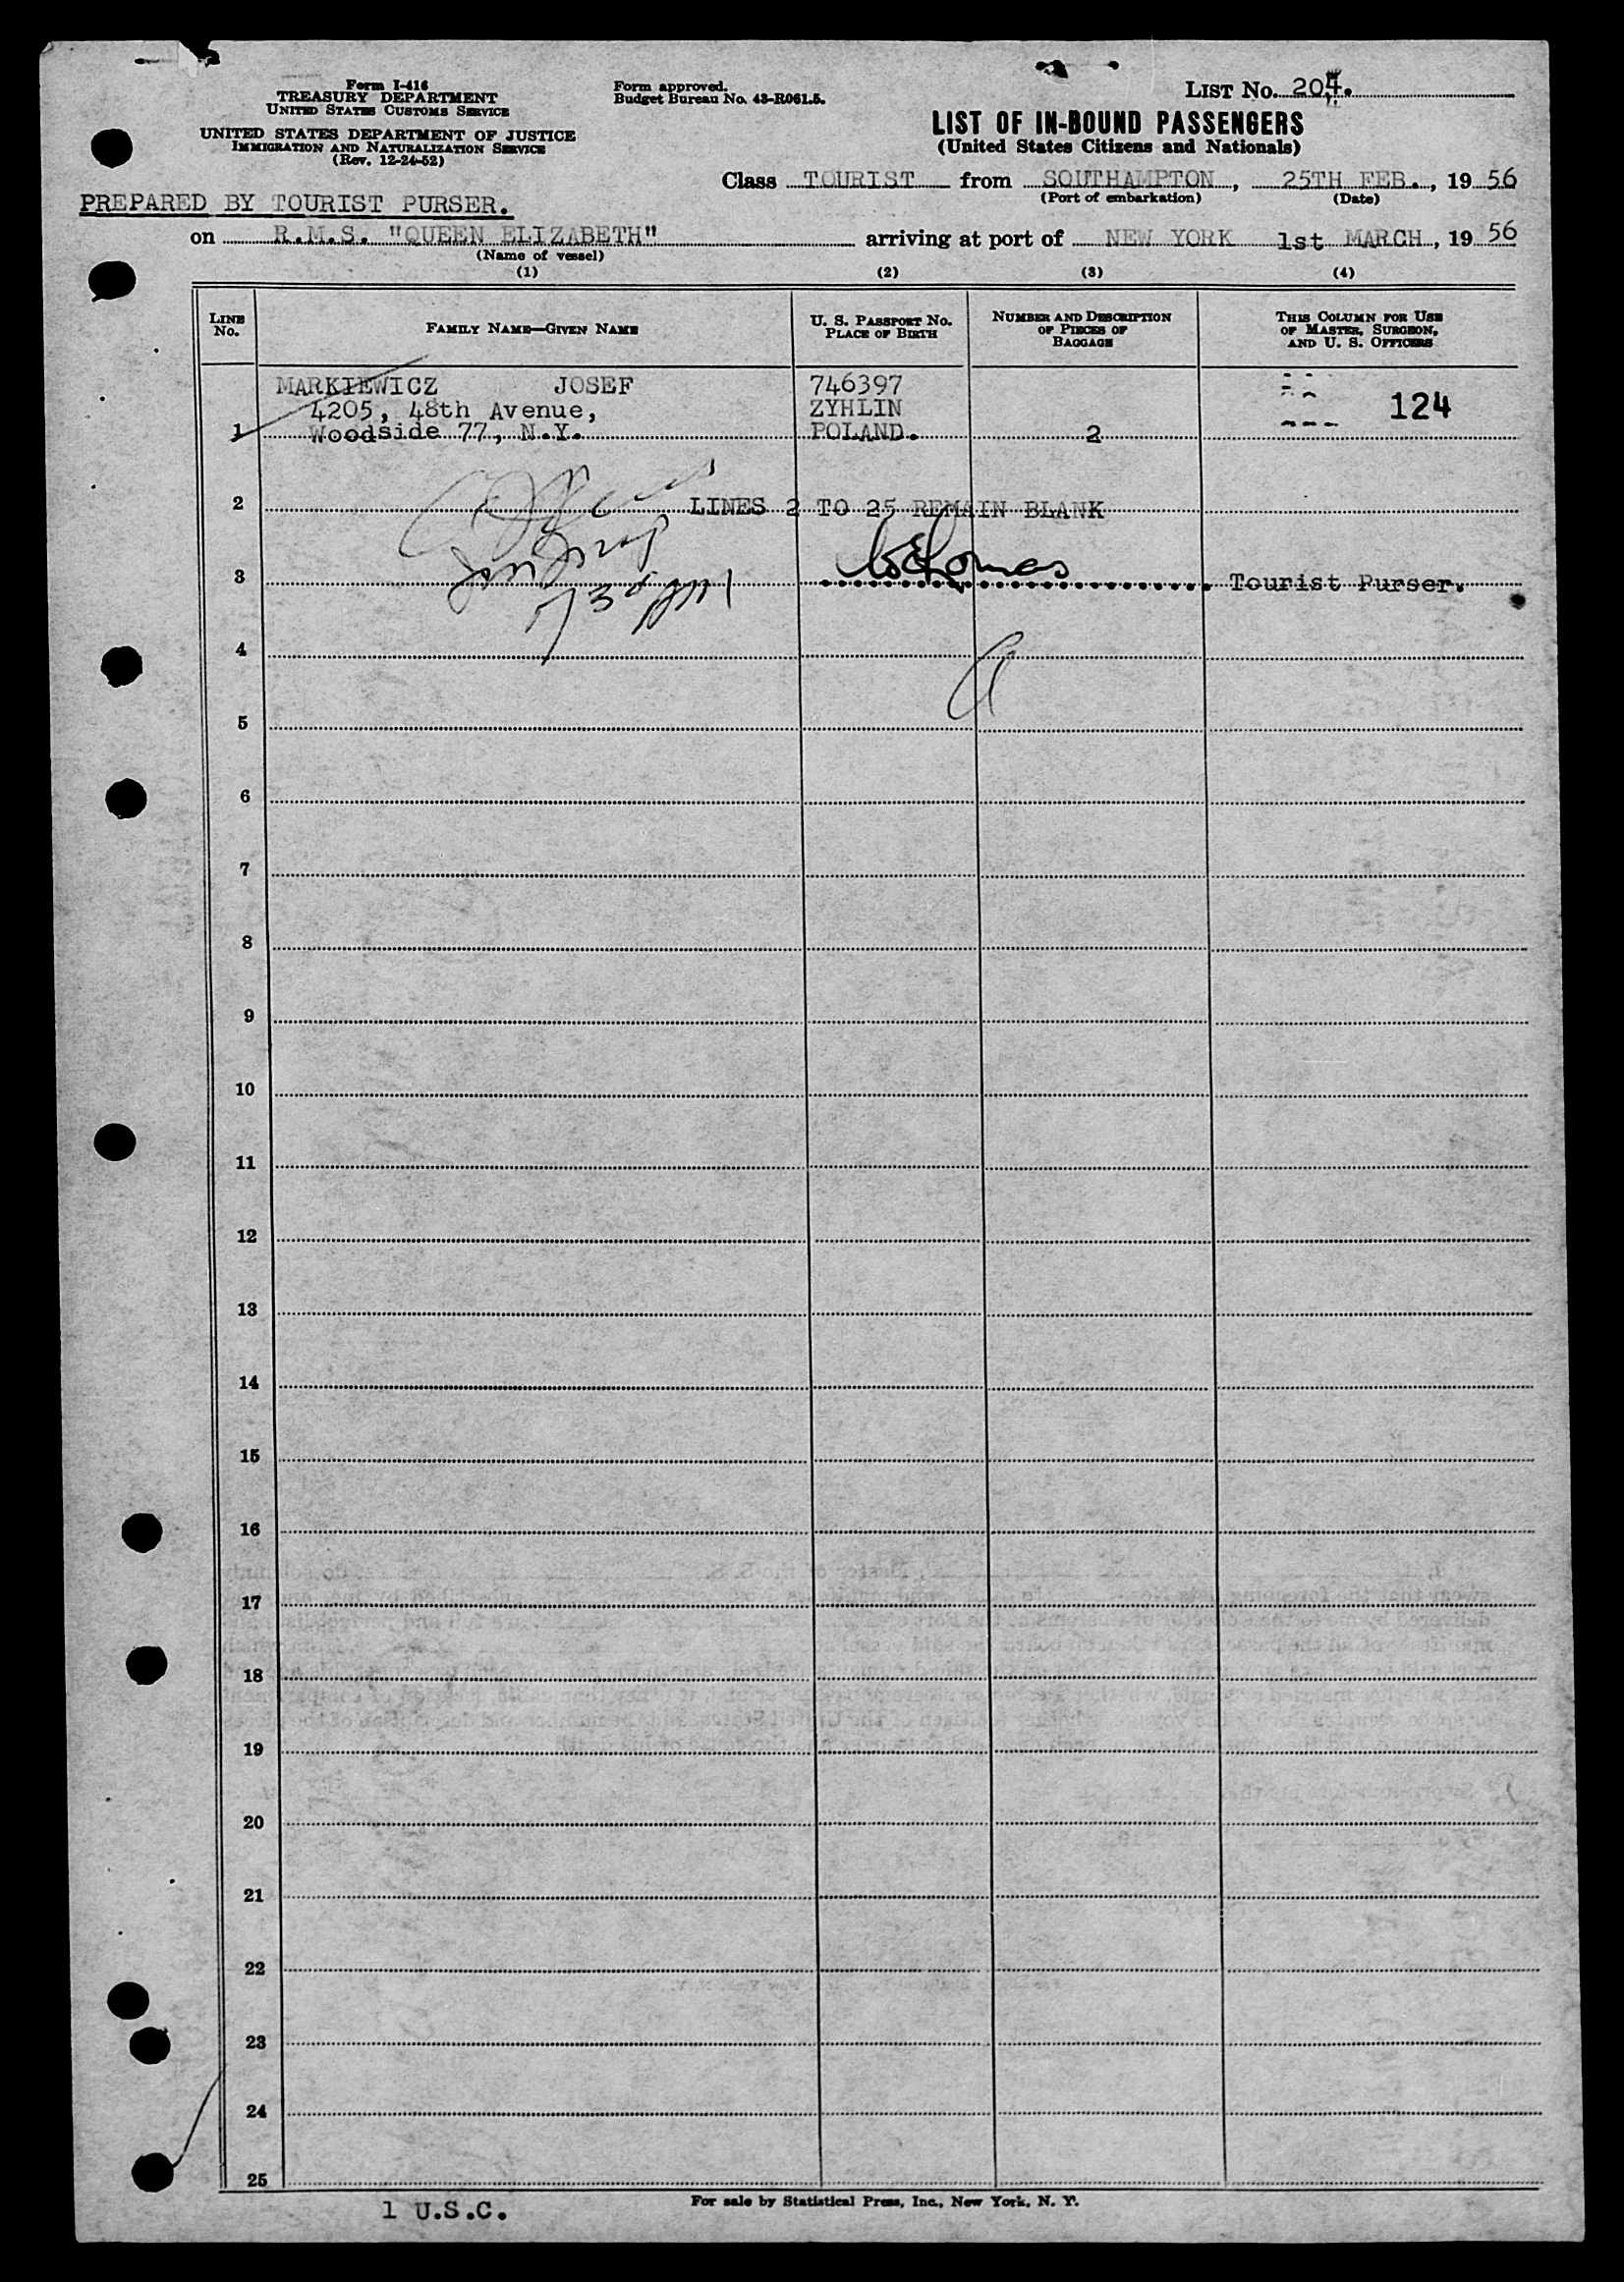 Form I-416
TREASURY DEPARTMENT
UNITED STATES CUSTOMS SERVICE
UNITED STATES DEPARTMENT OF JUSTICE
IMMIGRATION AND NATURALIZATION SERVICE
(Rev. 12-24-52)
Form approved.
Budget Bureau No. 43-R061.5.
LIST No. 204.
LIST OF IN-BOUND PASSENGERS
(United States Citizens and Nationals)
Class TOURIST from SOUTHAMPTON, 25TH FEB., 19 56
(Port of embarkation) (Date)
PREPARED BY TOURIST PURSER.
on R.M.S. "QUEEN ELIZABETH" arriving at port of NEW YORK 1st MARCH, 19 56
(Name of vessel)
(1) (2) (3) (4)
LINE No. FAMILY NAME—GIVEN NAME U. S. PASSPORT No. PLACE OF BIRTH NUMBER AND DESCRIPTION OF PIECES OF BAGGAGE THIS COLUMN FOR USE OF MASTER, SURGEON, AND U. S. OFFICERS
MARKIEWICZ JOSEF 746397
4205, 48th Avenue, ZYHLIN 124
1 Woodside 77, N.Y. POLAND. 2
2 LINES 2 TO 25 REMAIN BLANK
3 Tourist Purser.
4
5
6
7
8
9
10
11
12
13
14
15
16
17
18
19
20
21
22
23
24
25
1 U.S.C.
For sale by Statistical Press, Inc., New York, N. Y.